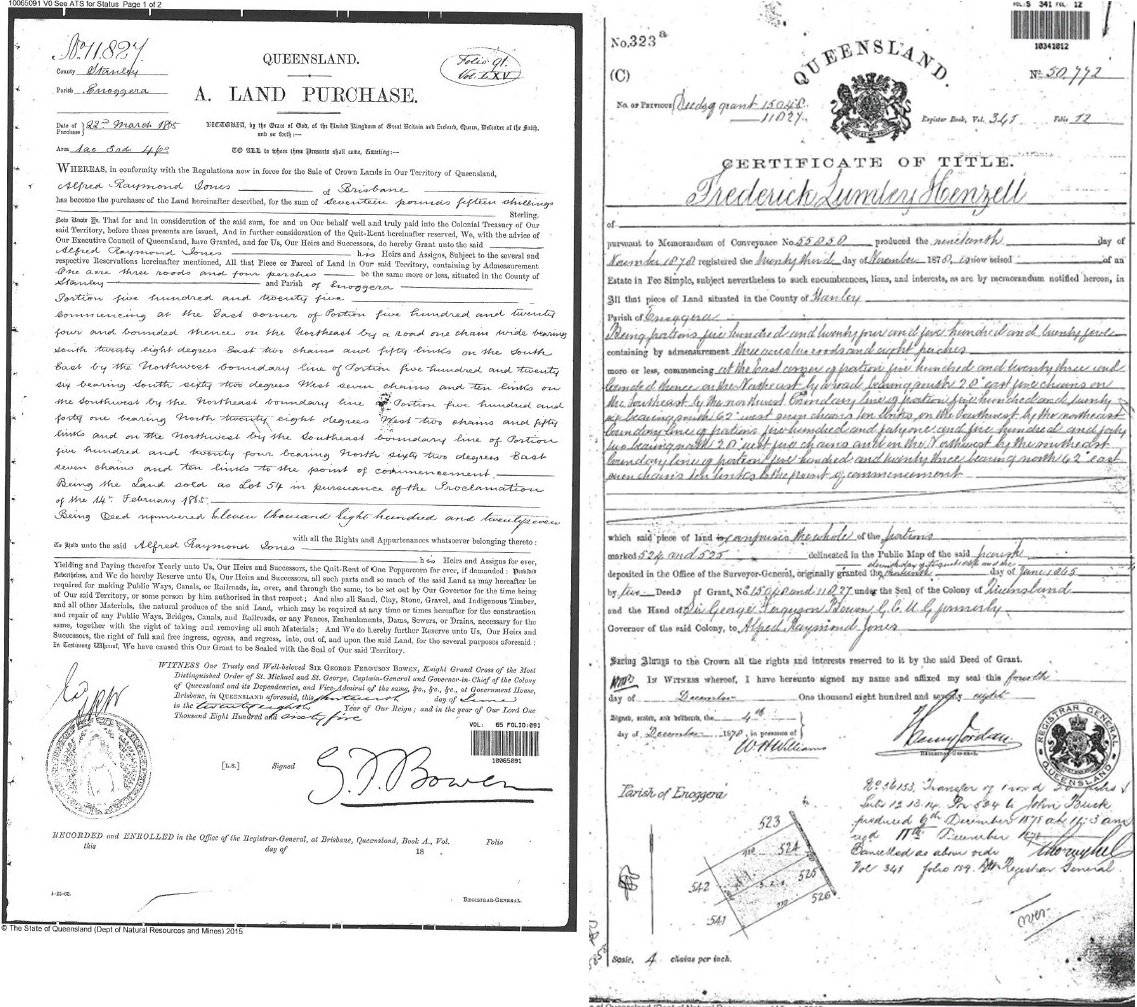 10065091 V0 See ATS for Status Page 1 of 2
No. 11827
County Stanley
Parish Enoggera
QUEENSLAND.
Folio 91.
Vol. LXV.
A. LAND PURCHASE.
Date of Purchase 22nd March 1865
Area 1ac 3rd 4po
VICTORIA, by the Grace of God, of the United Kingdom of Great Britain and Ireland, Queen, Defender of the Faith,
and so forth:—
TO ALL to whom these Presents shall come, Greeting:—
WHEREAS, in conformity with the Regulations now in force for the Sale of Crown Lands in Our Territory of Queensland,
Alfred Raymond Jones of Brisbane
has become the purchaser of the Land hereinafter described, for the sum of seventeen pounds fifteen shillings
Sterling.
Now Know Ye, That for and in consideration of the said sum, for and on Our behalf well and truly paid into the Colonial Treasury of Our
said Territory, before these presents are issued, And in further consideration of the Quit-Rent hereinafter reserved, We, with the advice of
Our Executive Council of Queensland, have Granted, and for Us, Our Heirs and Successors, do hereby Grant unto the said
Alfred Raymond Jones his Heirs and Assigns, Subject to the several and
respective Reservations hereinafter mentioned, All that Piece or Parcel of Land in Our said Territory, containing by Admeasurement
One acre three roods and four perches be the same more or less, situated in the County of
Stanley and Parish of Enoggera
Portion five hundred and twenty five
Commencing at the East corner of Portion five hundred and twenty
four and bounded thence on the Northeast by a road one chain wide bearing
South twenty eight degrees East two chains and fifty links on the South
East by the Northwest boundary line of Portion five hundred and twenty
six bearing South sixty two degrees West seven chains and ten links on
the Southwest by the Northeast boundary line of Portion five hundred and
forty one bearing North twenty eight degrees West two chains and fifty
links and on the Northwest by the Southeast boundary line of Portion
five hundred and twenty four bearing North sixty two degrees East
seven chains and ten links to the point of commencement
Being the Land sold as Lot 54 in pursuance of the Proclamation
of the 14th February 1865.
Being Deed numbered Eleven thousand Eight hundred and twenty seven
with all the Rights and Appurtenances whatsoever belonging thereto:
To Hold unto the said Alfred Raymond Jones
his Heirs and Assigns for ever,
Yielding and Paying therefor Yearly unto Us, Our Heirs and Successors, the Quit-Rent of One Peppercorn for ever, if demanded: Provided
Nevertheless, and We do hereby Reserve unto Us, Our Heirs and Successors, all such parts and so much of the said Land as may hereafter be
required for making Public Ways, Canals, or Railroads, in, over, and through the same, to be set out by Our Governor for the time being
of Our said Territory, or some person by him authorised in that respect; And also all Sand, Clay, Stone, Gravel, and Indigenous Timber,
and all other Materials, the natural produce of the said Land, which may be required at any time or times hereafter for the construction
and repair of any Public Ways, Bridges, Canals, and Railroads, or any Fences, Embankments, Dams, Sewers, or Drains, necessary for the
same, together with the right of taking and removing all such Materials; And We do hereby further Reserve unto Us, Our Heirs and
Successors, the right of full and free ingress, egress, and regress, into, out of, and upon the said Land, for the several purposes aforesaid:
In Testimony Whereof, We have caused this Our Grant to be Sealed with the Seal of Our said Territory.
WITNESS Our Trusty and Well-beloved SIR GEORGE FERGUSON BOWEN, Knight Grand Cross of the Most
Distinguished Order of St. Michael and St. George, Captain-General and Governor-in-Chief of the Colony
of Queensland and its Dependencies, and Vice-Admiral of the same, &c., &c., &c., at Government House,
Brisbane, in QUEENSLAND aforesaid, this day of June
in the twenty eighth Year of Our Reign; and in the year of Our Lord One
Thousand Eight Hundred and sixty five
VOL: 65 FOLIO:091
10065091
[L.S.] Signed G. F. Bowen
RECORDED and ENROLLED in the Office of the Registrar-General, at Brisbane, Queensland, Book A., Vol. Folio
this day of 18 .
REGISTRAR-GENERAL.
© The State of Queensland (Dept of Natural Resources and Mines) 2015
VOL:S 341 FOL: 12
10341012
No. 323a
(C)
QUEENSLAND
No. 50,772
No. of Previous Deeds of grant 15040
11827.
Register Book, Vol. 341 Folio 12
CERTIFICATE OF TITLE.
Frederick Lumley Henzell
of
pursuant to Memorandum of Conveyance No. 55050 produced the nineteenth day of
November 1878 registered the twenty third day of November 1878, is now seised of an
Estate in Fee Simple, subject nevertheless to such encumbrances, liens, and interests, as are by memorandum notified hereon, in
All that piece of Land situated in the County of Stanley
Parish of Enoggera
Being portions five hundred and twenty four and five hundred and twenty five
containing by admeasurement three acres two roods and eight perches
more or less, commencing at the East corner of portion five hundred and twenty three and
bounded thence on the Northeast by a road bearing south 28° east five chains on
the Southeast by the northwest boundary line of portion five hundred and twenty
six bearing south 62° west seven chains ten links on the Southwest by the northeast
boundary line of portions five hundred and forty one and five hundred and forty
two bearing north 28° west five chains and on the Northwest by the southeast
boundary line of portion five hundred and twenty three bearing north 62° east
seven chains ten links to the point of commencement
which said piece of land comprises the whole of the portions
marked 524 and 525 delineated in the Public Map of the said parish
deposited in the Office of the Surveyor-General, originally granted the day of June 1865
by two Deeds of Grant, No. 15040 and 11827 under the Seal of the Colony of Queensland
and the Hand of Sir George Ferguson Bowen G.C.M.G. formerly
Governor of the said Colony, to Alfred Raymond Jones
Saving Always to the Crown all the rights and interests reserved to it by the said Deed of Grant.
IN WITNESS whereof, I have hereunto signed my name and affixed my seal this fourth
day of December One thousand eight hundred and seventy eight
Signed, sealed, and delivered, the 4th
day of December 1878, in presence of
W H Williams
Henry Jordan
REGISTRAR-GENERAL.
REGISTRAR GENERAL QUEENSLAND
Parish of Enoggera
523
524
525
526
542
541
No. 56153, Transfer of 1 rood
Subs 12.13.14. Por 524 to John Buck
produced 9th December 1878 at 11.3 am
11th December 1878
Cancelled as above
Vol 341 folio 159. Registrar General
over
Scale, 4 chains per inch.